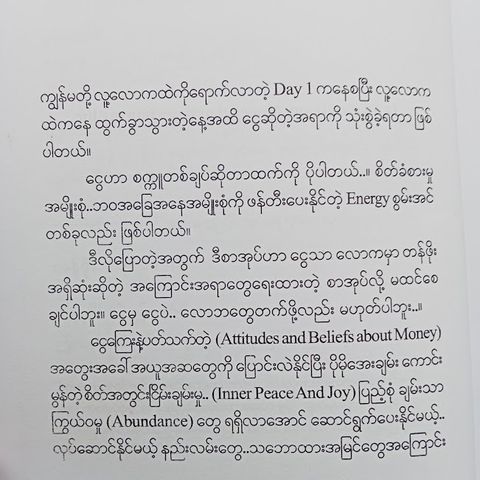 ကျွန်မတို့ လူ့လောကထဲကိုရောက်လာတဲ့ Day 1 ကနေစပြီး လူ့လောက
ထဲကနေ ထွက်ခွာသွားတဲ့နေ့အထိ ငွေဆိုတဲ့အရာကို သုံးစွဲခဲ့ရတာ ဖြစ်
ပါတယ်။
ငွေဟာ စက္ကူတစ်ချပ်ဆိုတာထက်ကို ပိုပါတယ်..။ စိတ်ခံစားမှု
အမျိုးစုံ..ဘဝအခြေအနေအမျိုးစုံကို ဖန်တီးပေးနိုင်တဲ့ Energy စွမ်းအင်
တစ်ခုလည်း ဖြစ်ပါတယ်။
ဒီလိုပြောတဲ့အတွက် ဒီစာအုပ်ဟာ ငွေသာ လောကမှာ တန်ဖိုး
အရှိဆုံးဆိုတဲ့ အကြောင်းအရာတွေရေးထားတဲ့ စာအုပ်လို့ မထင်စေ
ချင်ပါဘူး။ ငွေမှ ငွေပဲ.. လောဘတွေတက်ဖို့လည်း မဟုတ်ပါဘူး..။
ငွေကြေးနဲ့ပတ်သက်တဲ့ (Attitudes and Beliefs about Money)
အတွေးအခေါ် အယူအဆတွေကို ပြောင်းလဲနိုင်ပြီး ပိုမိုအေးချမ်း ကောင်း
မွန်တဲ့ စိတ်အတွင်းငြိမ်းချမ်းမှု.. (Inner Peace And Joy) ပြည့်စုံ ချမ်းသာ
ကြွယ်ဝမှု (Abundance) တွေ ရရှိလာအောင် ဆောင်ရွက်ပေးနိုင်မယ့်..
လုပ်ဆောင်နိုင်မယ့် နည်းလမ်းတွေ..သဘောထားအမြင်တွေအကြောင်း